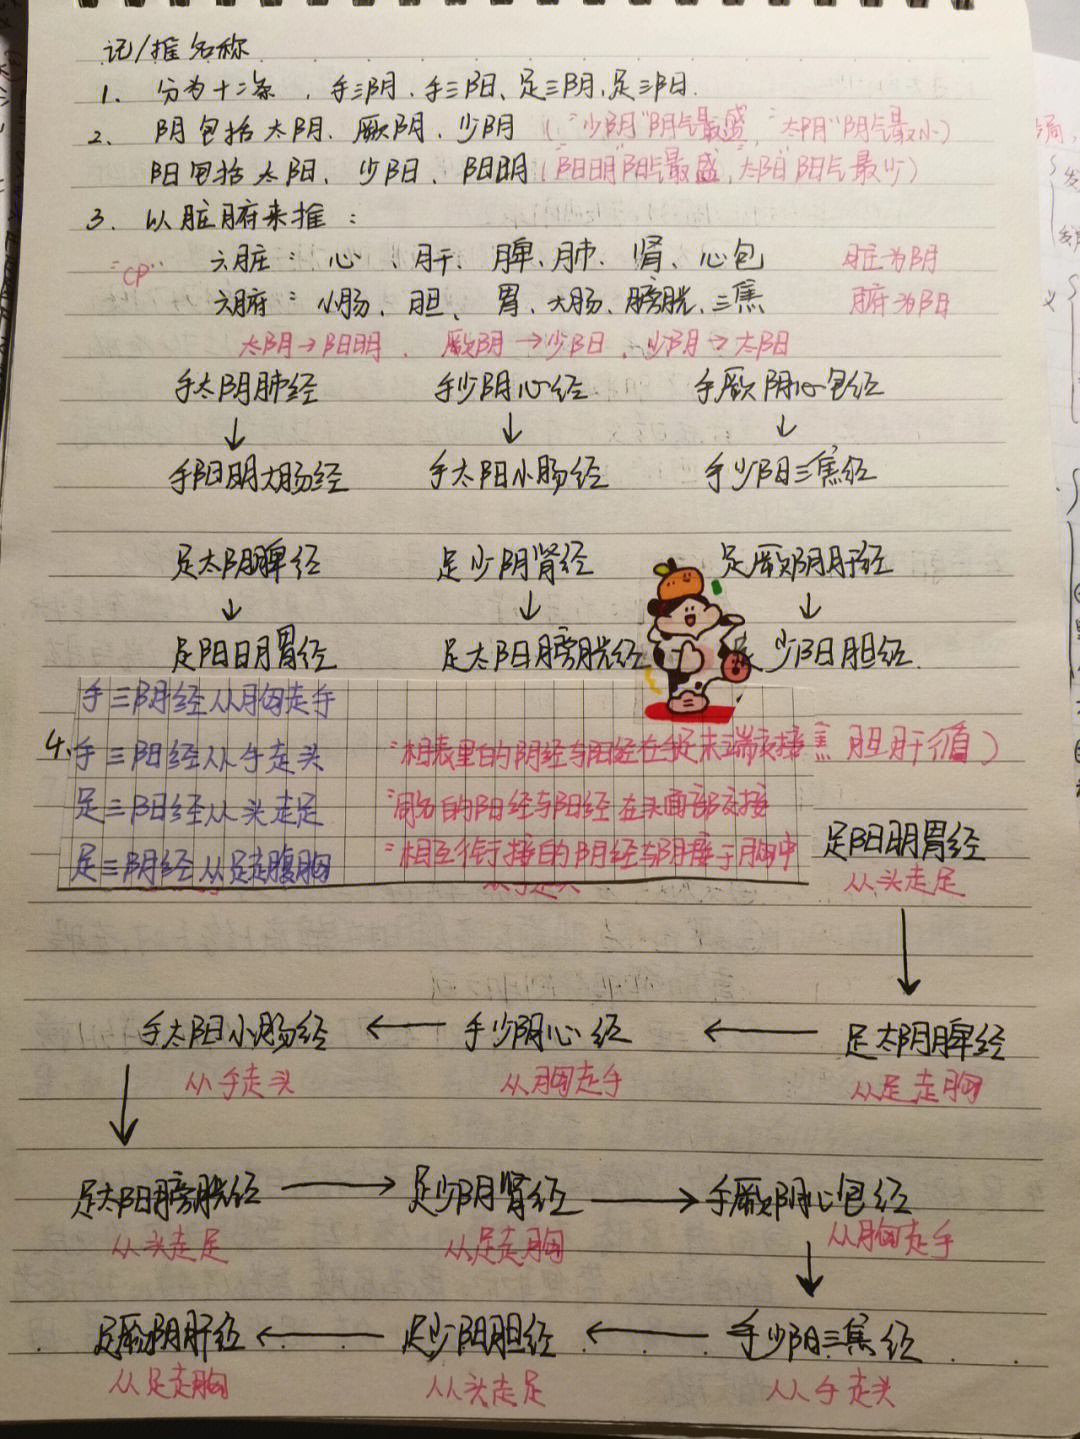 记/推名称
1. 分为十二条，手三阴、手三阳、足三阴，足三阳.
2. 阴包括太阴、厥阴、少阴（"少阴"阴气最盛，"太阴"阴气最小）
阳包括太阳、少阳、阳明（阳明阳气最盛，太阳阳气最少）
3. 以脏腑来推：
"CP" 六脏：心、肝、脾、肺、肾、心包 脏为阴
六腑：小肠、胆、胃、大肠、膀胱、三焦 腑为阳
太阴→阳明、厥阴→少阳、少阴→太阳
手太阴肺经 手少阴心经 手厥阴心包经
↓ ↓ ↓
手阳明大肠经 手太阳小肠经 手少阳三焦经
足太阴脾经 足少阴肾经 足厥阴肝经
↓ ↓ ↓
足阳明胃经 足太阳膀胱经 少阳胆经
手三阴经从胸走手
4. 手三阳经从手走头 相表里的阴经与阳经在手足末端交接 焦 胆肝循）
足三阳经从头走足 同名的阳经与阳经在头面部交接
足三阴经从足走腹胸 相互衔接的阴经与阴接于胸中
足阳明胃经
从头走足
↓
手太阳小肠经 ← 手少阴心经 ← 足太阴脾经
从手走头 从胸走手 从足走胸
↓
足太阳膀胱经 → 足少阴肾经 → 手厥阴心包经
从头走足 从足走胸 从胸走手
↓
足厥阴肝经 ← 足少阳胆经 ← 手少阳三焦经
从足走胸 从头走足 从手走头